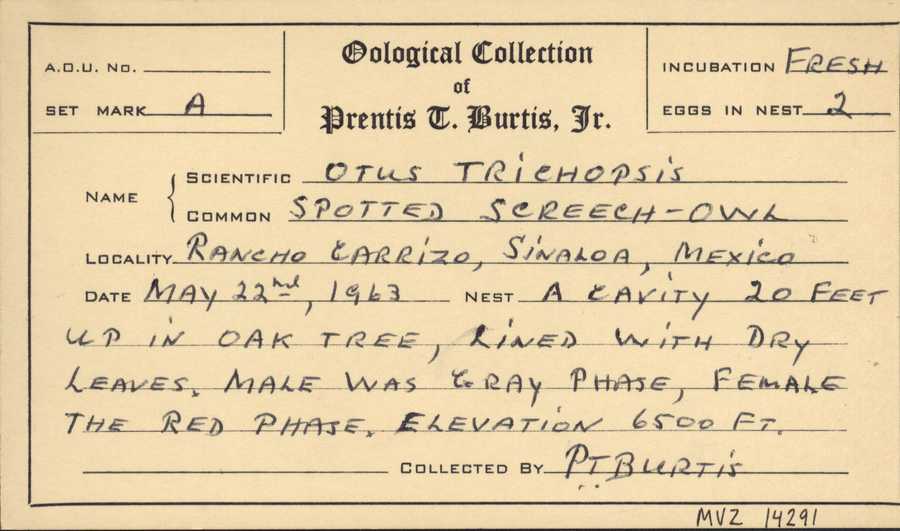 Oological Collection
of
Prentis T. Burtis, Jr.
A.O.U. No.
SET MARK A
INCUBATION FRESH
EGGS IN NEST 2
NAME
SCIENTIFIC OTUS TRICHOPSIS
COMMON SPOTTED SCREECH-OWL
LOCALITY RANCHO CARRIZO, SINALOA, MEXICO
DATE MAY 22nd, 1963 NEST A CAVITY 20 FEET
UP IN OAK TREE, LINED WITH DRY
LEAVES. MALE WAS GRAY PHASE, FEMALE
THE RED PHASE. ELEVATION 6500 FT.
COLLECTED BY PT BURTIS
MVZ 14291